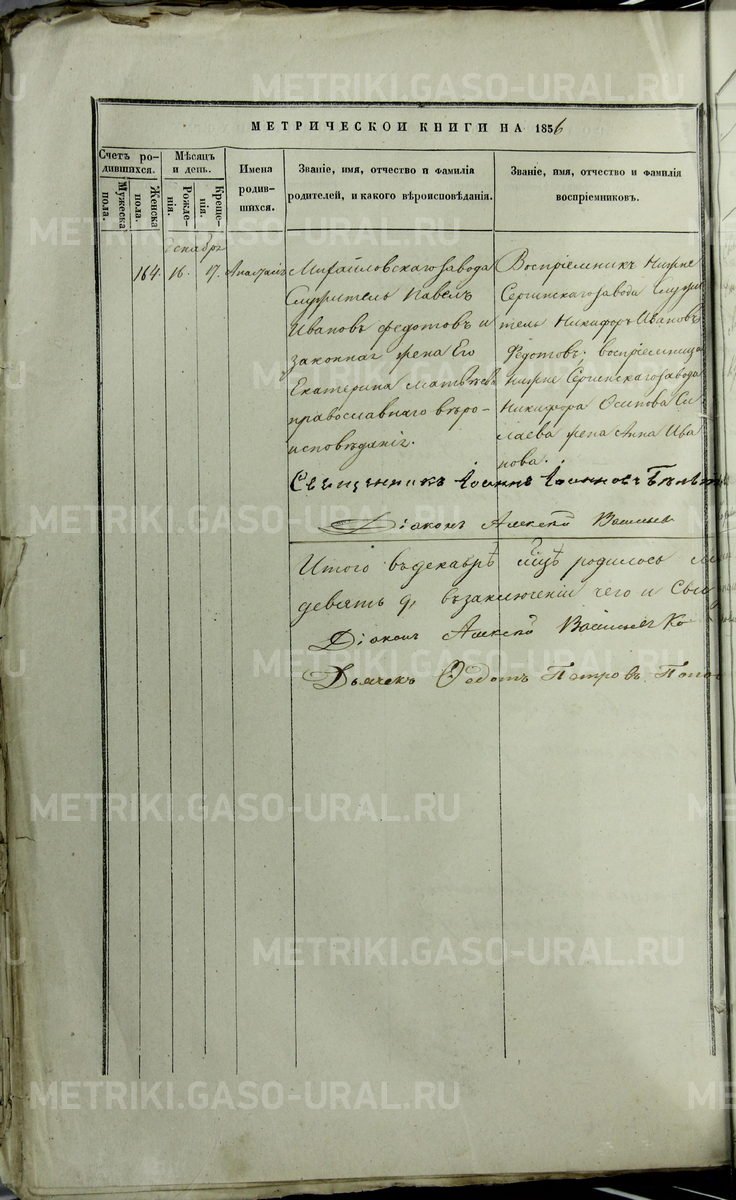 МЕТРИЧЕСКОЙ КНИГИ НА 1856
Счетъ ро-
дившихся.
Мужеска
пола.
Женска
пола.
Мѣсяцъ
и день.
Рожде-
нія.
Креще-
нія.
Имена
родив-
шихся.
Званіе, имя, отчество и фамилія
родителей, и какого вѣроисповѣданія.
Званіе, имя, отчество и фамилія
воспріемниковъ.
декабрь
164. 16. 17. Анастасія
Михайловскаго завода
Служитель Павелъ
Ивановъ Федотовъ и
законная жена Его
Екатерина Матвѣева
православнаго вѣро-
исповѣданія.
Воспріемникъ Нижне
Сергинскаго завода Служи
тель Никифоръ Ивановъ
Федотовъ; воспріемница
Нижне Сергинскаго завода
Никифора Осипова Си
лаева жена Анна Ива
нова.
Священникъ Іоаннъ Іоанновъ
Діаконъ Алексій Васильев
Итого въ декабрѣ мцѣ родилось
девять 9, въ заключеніи чего и Сви
Діаконъ Алексій Васильевъ Ко
Дьячекъ Федотъ Петровъ Попов
METRIKI.GASO-URAL.RU